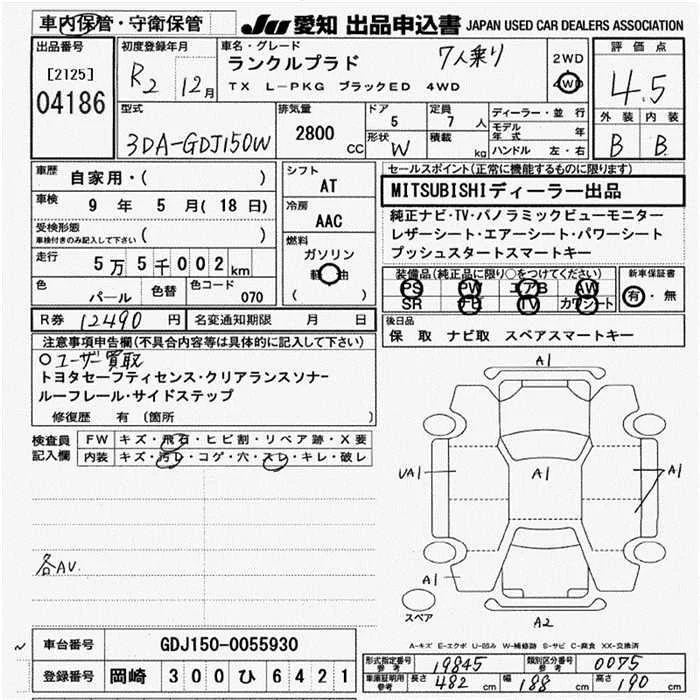 車内保管・守衛保管
JU 愛知 出品申込書 JAPAN USED CAR DEALERS ASSOCIATION
出品番号
[2125]
04186
初度登録年月
R2 12月
車名・グレード
ランクルプラド 7人乗り
TX L-PKG ブラックED 4WD
2WD
4WD
評価点
4.5
外装 内装
B B
型式
3DA-GDJ150W
排気量
2800 cc
ドア 定員
5 7 人
形状 積載
W kg
ディーラー・並行
モデル年式 年
ハンドル 左・右
車歴
自家用・( )
車検
9 年 5 月(18 日)
受検形態
車検付きのみ記入して下さい ( )
走行
5万5千002km
色 色替 色コード
パール 070
シフト
AT
冷房
AAC
燃料
ガソリン
軽油
( )
セールスポイント(正常に機能するものに限ります)
MITSUBISHIディーラー出品
純正ナビ・TV・パノラミックビューモニター
レザーシート・エアーシート・パワーシート
プッシュスタートスマートキー
装備品(純正品に限り○をつけてください)
PS PW エアB AW
SR TV カワシート
新車保証書
有・無
R券 12490 円 名変通知期限 月 日
後日品
保 取 ナビ取 スペアスマートキー
注意事項申告欄(不具合内容等は具体的に記入して下さい)
○ユーザー買取
トヨタセーフティセンス・クリアランスソナー
ルーフレール・サイドステップ
修復歴 有 (箇所 )
検査員記入欄
FW キズ・飛石・ヒビ割・リペア跡・X要
内装 キズ・汚レ・コゲ・穴・スレ・キレ・破レ
各AU.
A1
UA1 A1 A1
A1
スペア
A2
A-キズ E-エクボ U-凹み W-補修跡 S-サビ C-腐食 XX-交換済
車台番号 GDJ150-0055930
登録番号 岡崎 300 ひ 6421
形式指定番号 参考 19845 類別区分番号 参考 0075
車庫証明用 参考 長さ 482 cm 幅 188 cm 高さ 190 cm